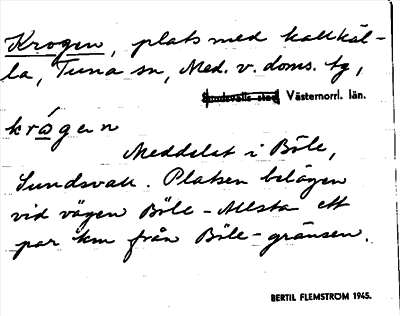 Krogen, plats med kallkäl-
la, Tuna sn, Med. v. doms. tg,
Sundsvalls stad Västernorrl. län.
krågen
Meddelat i Böle,
Sundsvall. Platsen belägen
vid vägen Böle - Allsta ett
par km från Böle-gränsen.
BERTIL FLEMSTRÖM 1945.